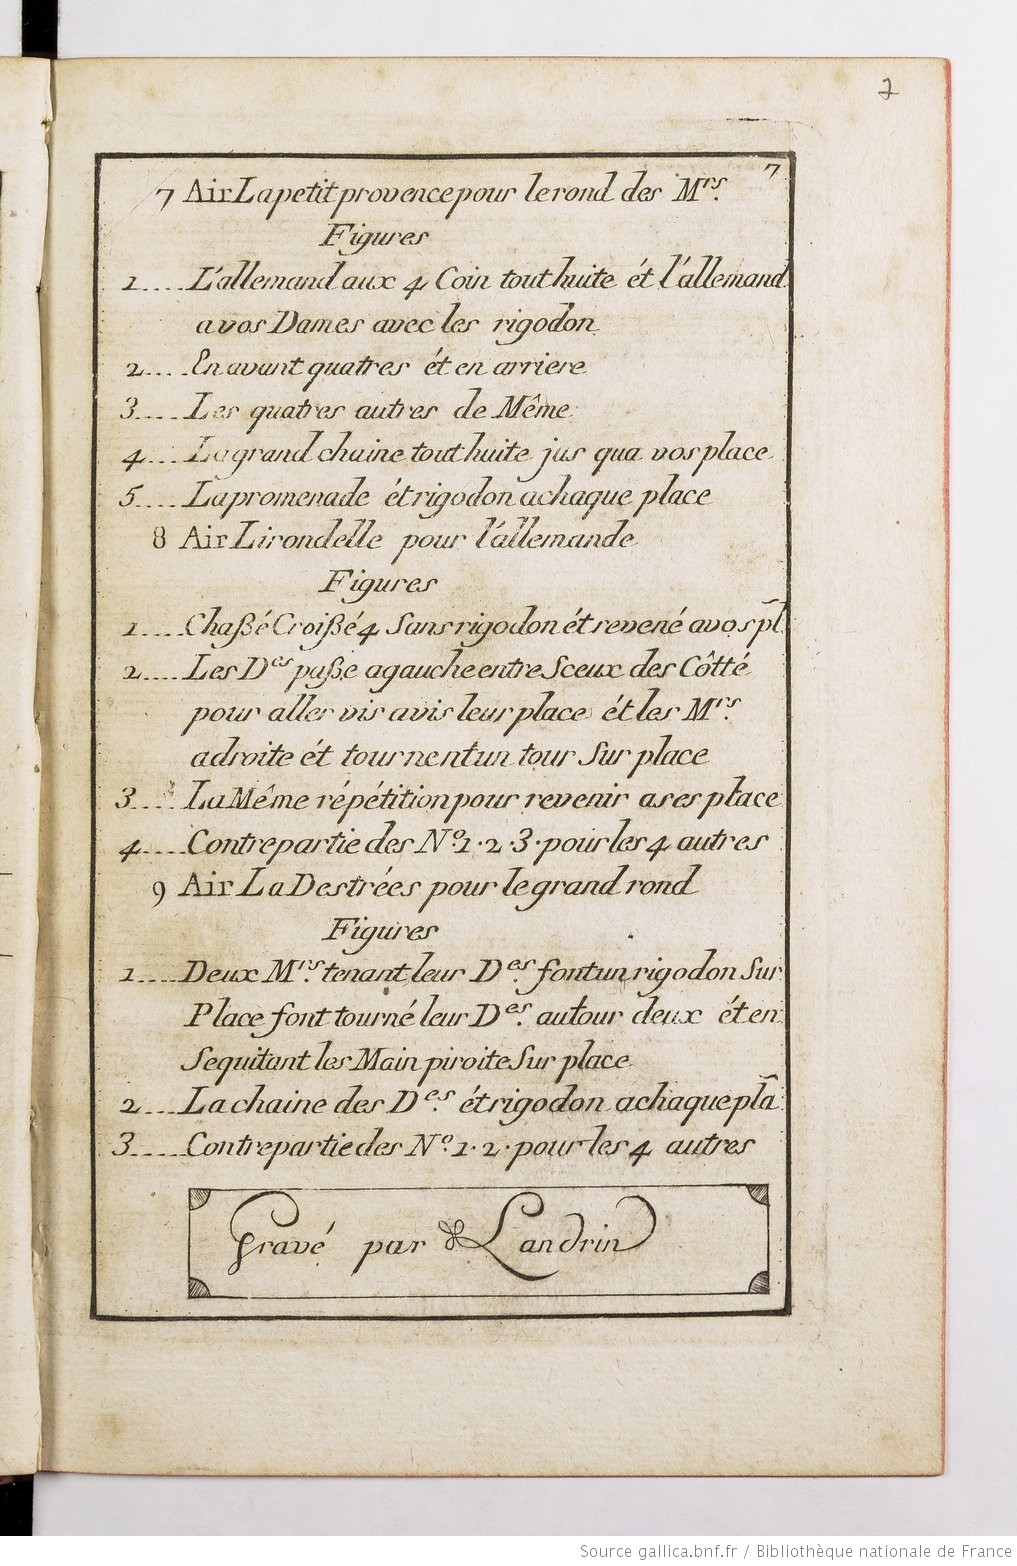 7
7
7 Air La petit provence pour le rond des Mrs.
Figures
1.... L'allemand aux 4 Coin tout huite ét l'allemand
a vos Dames avec les rigodon
2.... En avant quatres ét en arriere
3.... Les quatres autres de Même.
4.... La grand chaine tout huite jus qua vos place
5.... La promenade ét rigodon a chaque place
8 Air Lirondelle pour l'allemande
Figures
1.... Chaßé Croißé 4 Sans rigodon ét revené a vos pl̄
2.... Les Des paße a gauche entre Sceux des Côtté
pour aller vis a vis leur place ét les Mrs.
a droite ét tournent un tour Sur place
3.... La Même répétition pour revenir a ses place
4.... Contrepartie des No. 1. 2. 3. pour les 4 autres
9 Air La Destrées pour le grand rond
Figures
1.... Deux Mrs. tenant leur Des. font un rigodon Sur
Place font tourné leur Des. autour deux ét en
Sequitant les Main piroite Sur place
2.... La chaine des Des. ét rigodon a chaque pla̅
3.... Contrepartie des No. 1. 2. pour les 4 autres
Gravé par Landrin
Source gallica.bnf.fr / Bibliothèque nationale de France